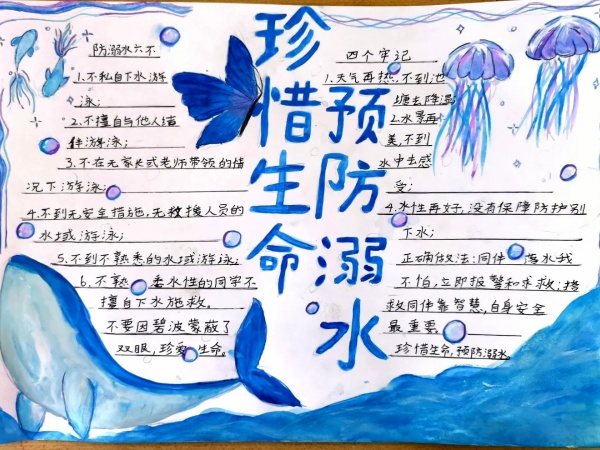 珍惜生命
预防溺水
防溺水六不
1.不私自下水游
泳；
2.不擅自与他人结
伴游泳；
3.不在无家长或老师带领的情
况下游泳；
4.不到无安全措施，无救援人员的
水域游泳；
5.不到不熟悉的水域游泳；
6.不熟悉水性的同学不
擅自下水施救。
不要因碧波蒙蔽了
双眼，珍爱生命。
四个牢记
1.天气再热，不到池
塘去降温
2.水景再
美，不到
水中去感
受；
4.水性再好，没有保障防护别
下水；
正确做法：同伴落水我
不怕，立即报警和求救；拯
救同伴靠智慧，自身安全
最重要。
珍惜生命，预防溺水